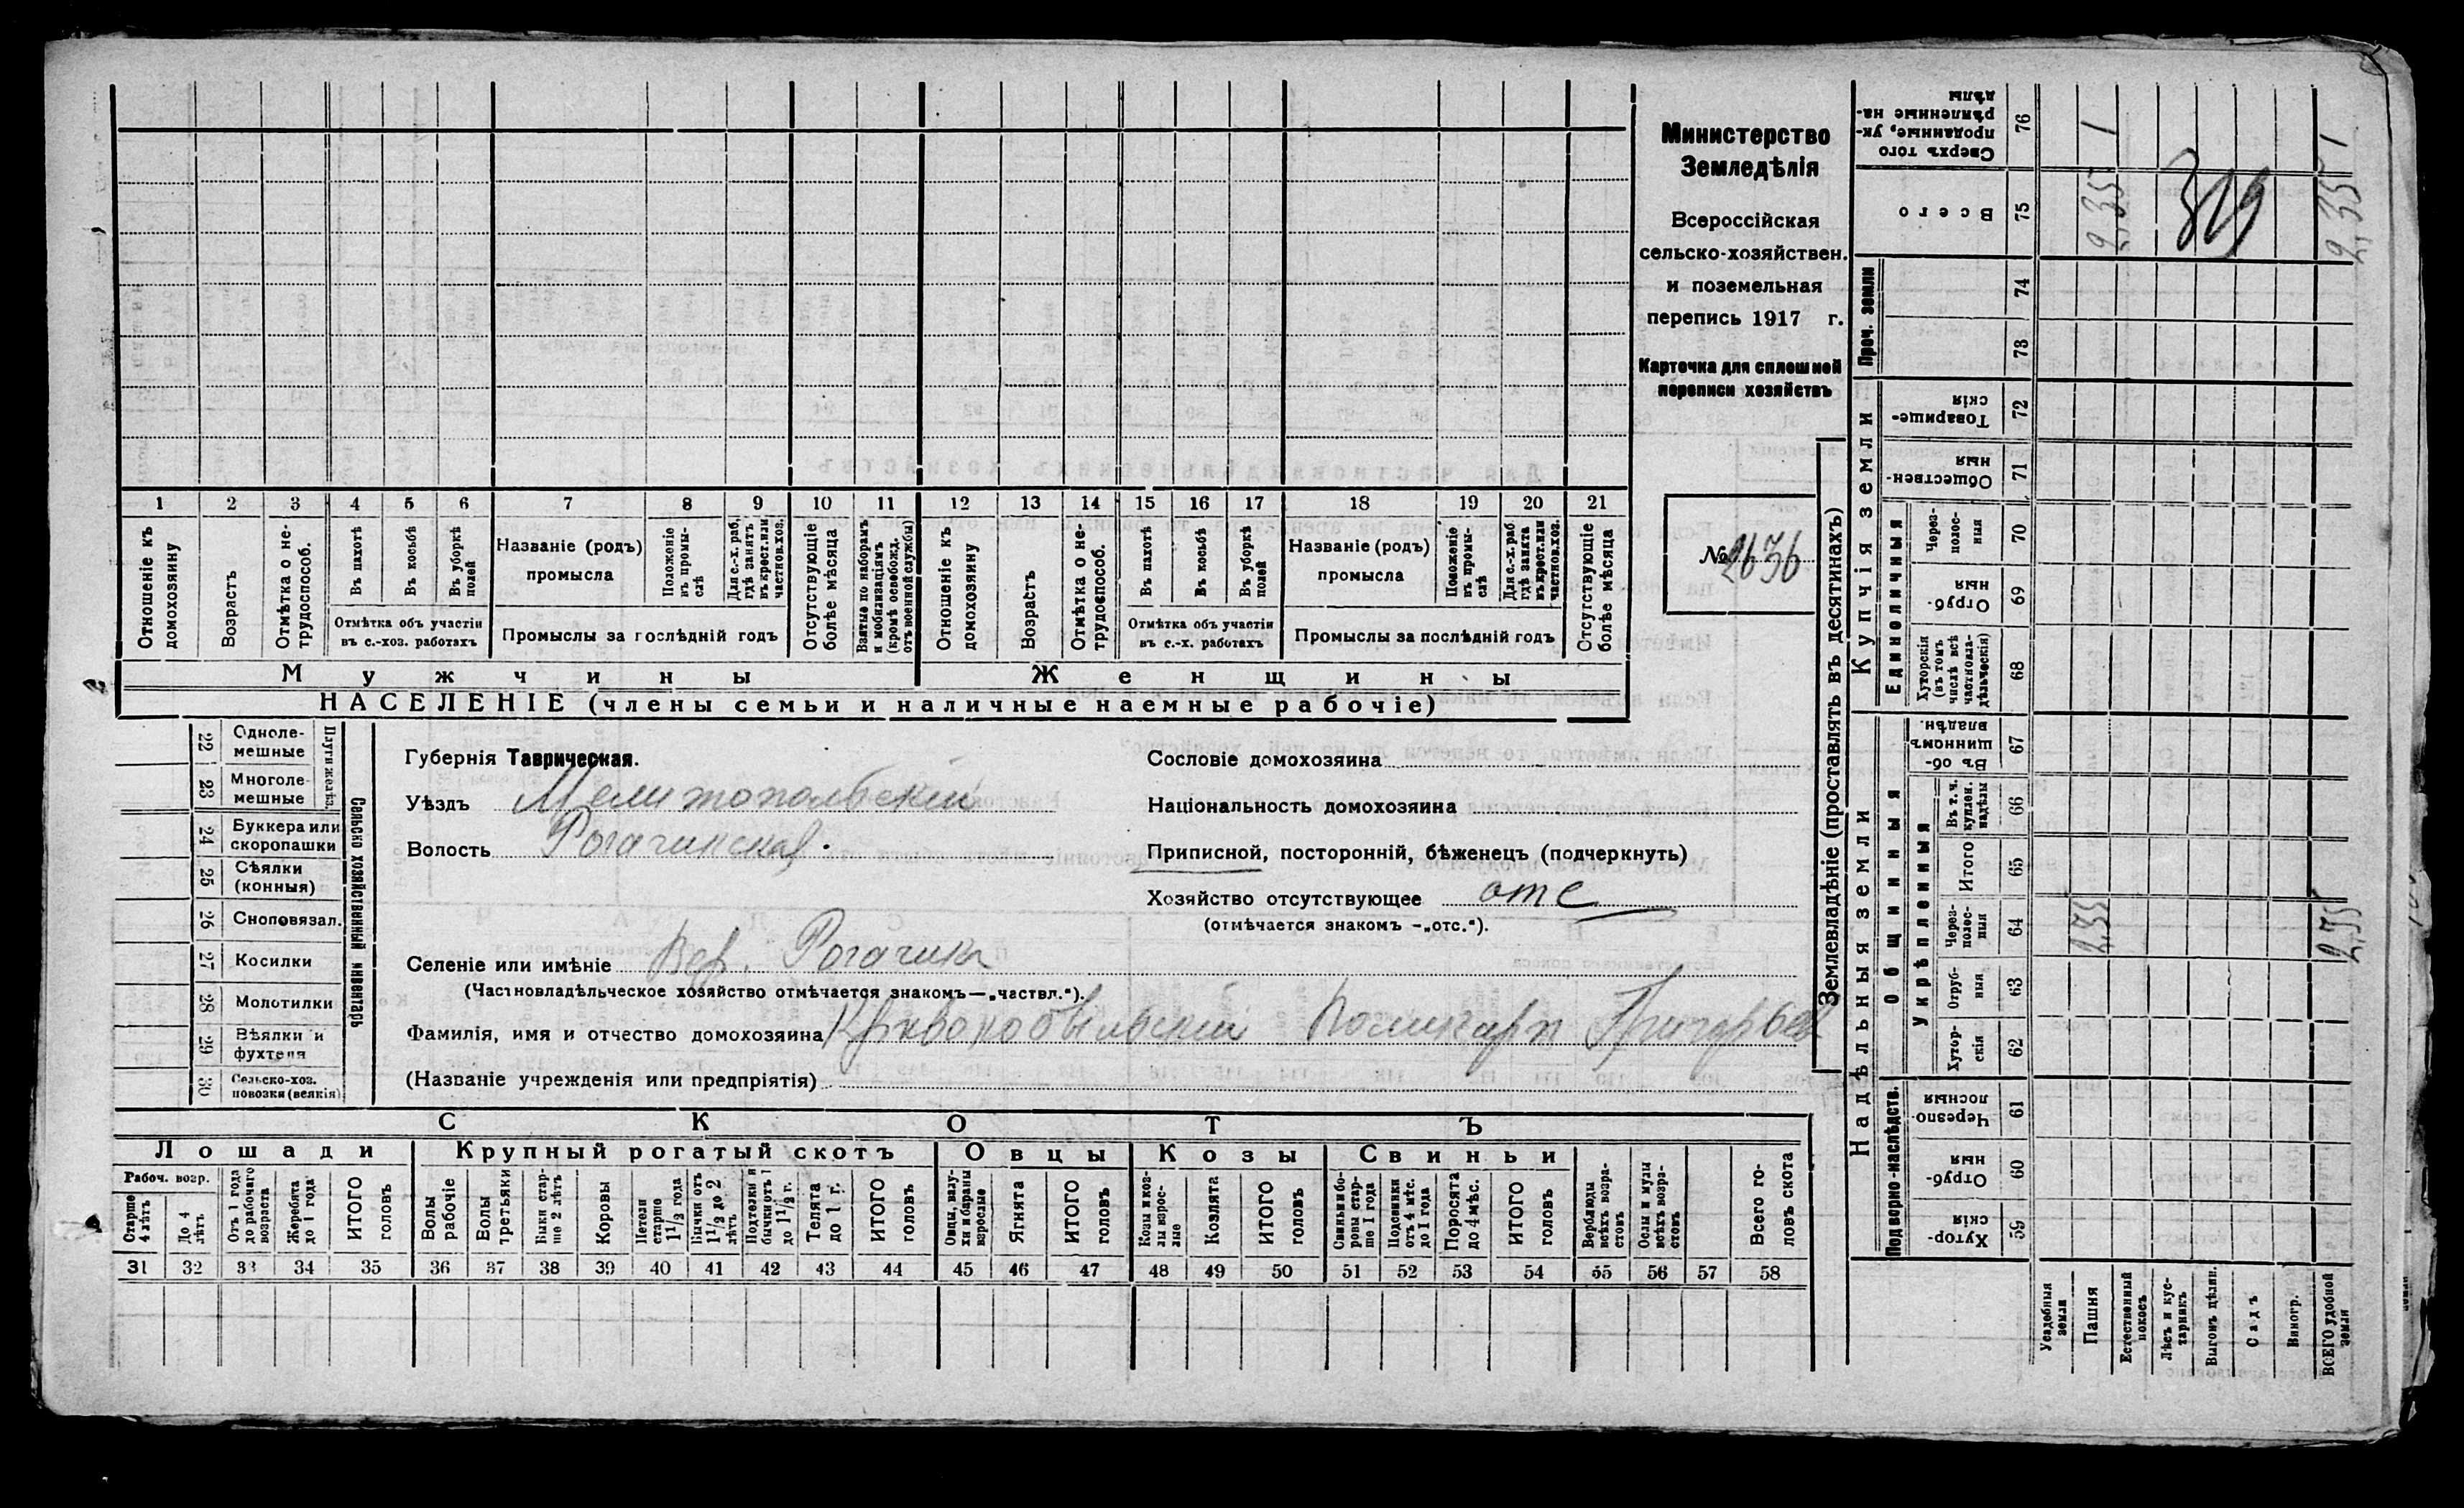 Министерство
Земледѣлія
Всероссійская
сельско-хозяйствен.
и поземельная
перепись 1917 г.
Карточка для сплошной
переписи хозяйствъ
№ 2636
1 2 3 4 5 6 7 8 9 10 11 12 13 14 15 16 17 18 19 20 21
Отношеніе къ домохозяину
Возрастъ
Отмѣтка о не-трудоспособ.
Въ пахотѣ
Въ косьбѣ
Въ уборкѣ полей
Отмѣтка объ участіи
въ с.-хоз. работахъ
Названіе (родъ)
промысла
Положеніе въ промы-слѣ
Для с.-х. раб. гдѣ занятъ въ крест. или частнов. хоз.
Промыслы за послѣдній годъ
Отсутствующіе болѣе мѣсяца
Взятые по наборамъ и мобилизаціямъ (кромѣ освобожд. отъ военной службы)
Отношеніе къ домохозяину
Возрастъ
Отмѣтка о не-трудоспособ.
Въ пахотѣ
Въ косьбѣ
Въ уборкѣ полей
Отмѣтка объ участіи
въ с.-х. работахъ
Названіе (родъ)
промысла
Положеніе въ промы-слѣ
Для с.-х. раб. гдѣ занята въ крест. или частнов. хоз.
Промыслы за послѣдній годъ
Отсутствующіе болѣе мѣсяца
Мужчины
Женщины
НАСЕЛЕНІЕ (члены семьи и наличные наемные рабочіе)
22 Одноле-мешные
23 Многоле-мешные
Плуги желѣз.
24 Буккера или скоропашки
25 Сѣялки (конныя)
26 Сноповязал.
27 Косилки
28 Молотилки
29 Вѣялки и фухтеля
30 Сельско-хоз. повозки (всякія)
Сельско хозяйственный инвентарь
Губернія Таврическая.
Уѣздъ Мелитопольскій
Волость Рогачинская.
Сословіе домохозяина
Національность домохозяина
Приписной, посторонній, бѣженецъ (подчеркнуть)
Хозяйство отсутствующее отс
(отмѣчается знакомъ -„отс.“).
Селеніе или имѣніе Вер. Рогачикъ
(Частновладѣльческое хозяйство отмѣчается знакомъ—„частвл.“).
Фамилія, имя и отчество домохозяина Кривокобыльскій Поликарп Григорьев
(Названіе учрежденія или предпріятія)
СКОТЪ
Лошади
Крупный рогатый скотъ
Овцы
Козы
Свиньи
Рабоч. возр.
Старше 4 лѣтъ
До 4 лѣтъ
Отъ 1 года до рабочаго возраста
Жеребята до 1 года
ИТОГО головъ
Волы рабочіе
Волы третьяки
Быки стар-ше 2 лѣтъ
Коровы
Нетели старше 1½ года
Бычки отъ 1½ до 2 лѣтъ
Подтелки и бычки отъ 1 до 1½ г.
Телята до 1 г.
ИТОГО головъ
Овцы, валу-хи и бараны взрослые
Ягнята
ИТОГО головъ
Козы и коз-лы взрос-лые
Козлята
ИТОГО головъ
Свиньи и бо-ровы стар-ше 1 года
Подсвинки отъ 4 мѣс. до 1 года
Поросята до 4 мѣс.
ИТОГО головъ
Верблюды всѣхъ возра-стовъ
Ослы и мулы всѣхъ возра-стовъ
Всего го-ловъ скота
31 32 33 34 35 36 37 38 39 40 41 42 43 44 45 46 47 48 49 50 51 52 53 54 55 56 57 58
Землевладѣніе (проставлять въ десятинахъ)
Надѣльныя земли
Купчія земли
Проч. земли
Подворно-наслѣдств.
Общинныя
Укрѣпленныя
Единоличныя
76 Сверхъ того проданные, ук-рѣпленные на-дѣлы 1 1
75 Всего 2,35 319 2,35
74
73
72 Товарище-скія
71 Обществен-ныя
70 Через-полос-ныя
69 Отруб-ныя
68 Хуторскія (въ томъ числѣ всѣ частновла-дѣльческія)
67 Въ об-щинномъ владѣн.
66 Въ т. ч. куплен. надѣлы
65 Итого
64 Через-полос-ныя 2,35 2,35
63 Отруб-ныя
62 Хутор-скія
61 Черезпо-лосныя
60 Отруб-ныя
59 Хутор-скія
Усадебныя земли
Пашня
Естественный покосъ
Лѣсъ и кус-тарникъ
Выгонъ цѣлин.
Садъ
Виногр.
ВСЕГО удобной земли